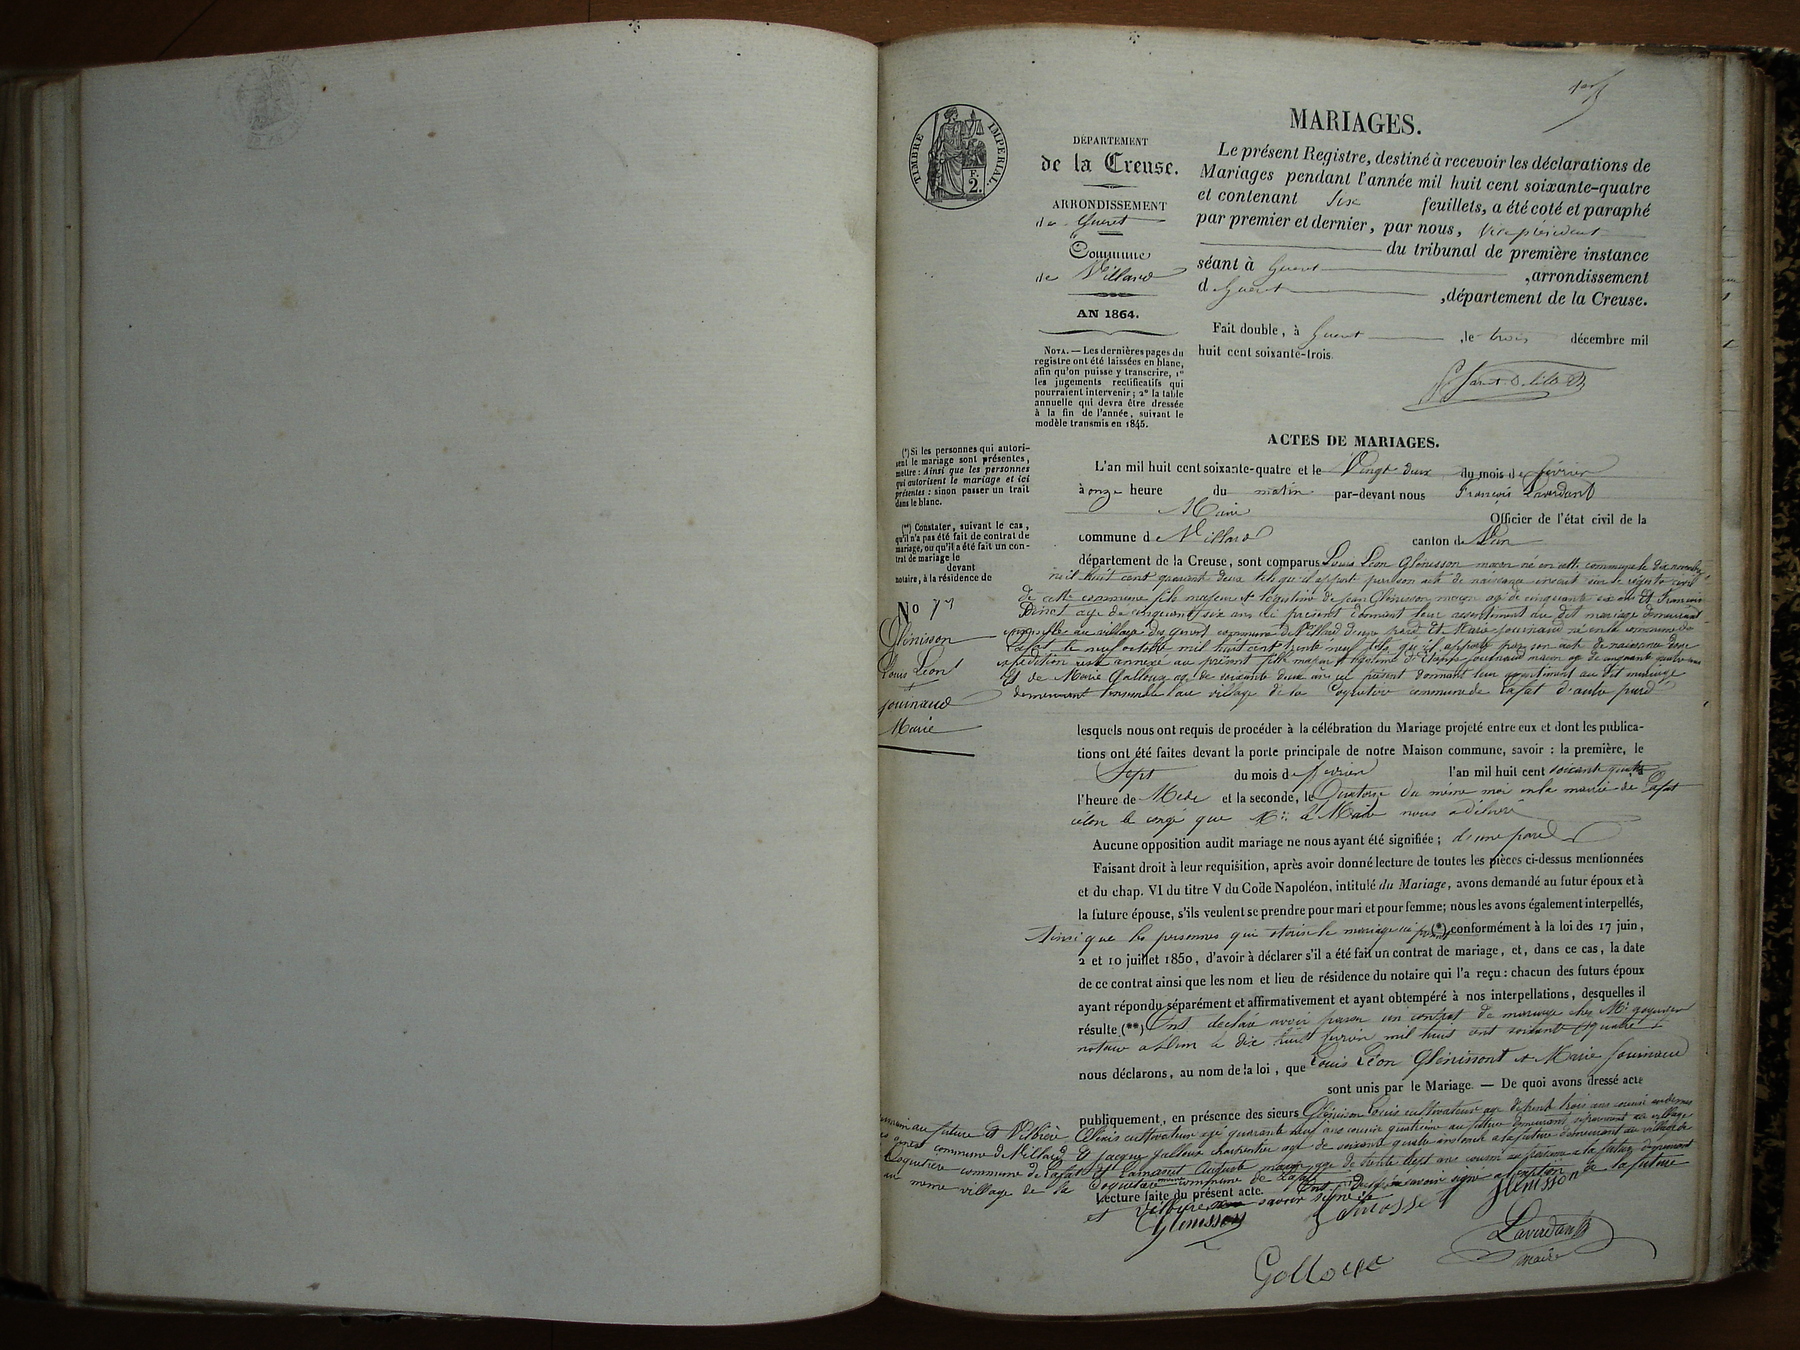 1er
TIMBRE IMPERIAL.
F.
2.
DÉPARTEMENT
de la Creuse.
ARRONDISSEMENT
de Guéret
Commune
de Villard
AN 1864.
NOTA. — Les dernières pages du
registre ont été laissées en blanc,
afin qu'on puisse y transcrire, 1°
les jugements rectificatifs qui
pourraient intervenir; 2° la table
annuelle qui devra être dressée
à la fin de l'année, suivant le
modèle transmis en 1845.
MARIAGES.
Le présent Registre, destiné à recevoir les déclarations de
Mariages pendant l'année mil huit cent soixante-quatre
et contenant six feuillets, a été coté et paraphé
par premier et dernier, par nous, Vice président
du tribunal de première instance
séant à Guéret ,arrondissement
d Guéret ,département de la Creuse.
Fait double, à Guéret ,le trois décembre mil
huit cent soixante-trois.
(*) Si les personnes qui autori-
sent le mariage sont présentes,
mettre: Ainsi que les personnes
qui autorisent le mariage et ici
présentes: sinon passer un trait
dans le blanc.
(**) Constater, suivant le cas,
qu'il n'a pas été fait de contrat de
mariage, ou qu'il a été fait un con-
trat de mariage le
devant
notaire, à la résidence de
No
Glénisson
Louis Léon
+
Journaud
Marie
ACTES DE MARIAGES.
L'an mil huit cent soixante-quatre et le Vingt deux du mois de février
à onze heure du matin par-devant nous François Laverdant
Maire
Officier de l'état civil de la
commune d Villard canton de Dun
département de la Creuse, sont comparus Louis Léon Glénisson maçon né en cette commune le dix novembre
mil huit cent quarante deux tels qu'il apport par son acte de naissance inscrit sur le registre civil
de cette commune fils majeur et légitime de Jean Glénisson maçon agé de cinquante six ans et Françoise
Dinot age de cinquante six ans ici présent donnant leur assentiment au dit mariage demeurant
ensemble au village des commune de Villard d'une part Et Marie Journaud né en la commune de
Lafat le neuf octobre mil huit cent trente neuf tels qu'il apporte par son acte de naissance dont
expédition est annexé au présent fille majeur et légitime d' Journaud maçon age de cinquante quatre ans
Et de Marie Galloux age de soixante deux ans ici présent donnant leur assentiment au dit mariage
demeurant ensemble au village de la Coquetière commune de Lafat d'autre part
lesquels nous ont requis de procéder à la célébration du Mariage projeté entre eux et dont les publica-
tions ont été faites devant la porte principale de notre Maison commune, savoir: la première, le
Sept du mois de février l'an mil huit cent soixante quatre
l'heure de Midi et la seconde, le Quatorze du même moi en la mairie de Lafat
celon le que Mr le Maire nous a délivré
Aucune opposition audit mariage ne nous ayant été signifiée; d'une part
Faisant droit à leur requisition, après avoir donné lecture de toutes les pièces ci-dessus mentionnées
et du chap. VI du titre V du Code Napoléon, intitulé du Mariage, avons demandé au futur époux et à
la future épouse, s'ils veulent se prendre pour mari et pour femme; nous les avons également interpellés,
Ainsi que les personnes qui otorise le mariage ici présent (*) conformément à la loi des 17 juin,
2 et 10 juillet 1850, d'avoir à déclarer s'il a été fait un contrat de mariage, et, dans ce cas, la date
de ce contrat ainsi que les nom et lieu de résidence du notaire qui l'a reçu: chacun des futurs époux
ayant répondu séparément et affirmativement et ayant obtempéré à nos interpellations, desquelles il
résulte (**) Ont déclaré avoir passer un contrat de mariage chez Mr
notaire a Dun le dix huit février mil huit cent soixante quatre
nous déclarons, au nom de la loi, que Louis Léon Glénissont et Marie Journaud
sont unis par le Mariage. — De quoi avons dressé acte
publiquement, en présence des sieurs Glénisson Louis cultivateur age de trente trois ans cousin
au future Et Vilbière Cléris cultivateur agé quarante neuf ans cousin au futur demeurant séparement au village
commune de Villard Et Jacque Galloux charpentier agé de soixante quatre ans oncle a la future demeurant au village de la
Coquetière commune de Lafat Et Lamasset Auguste maçon age de trente sept ans cousin a la future demeurant
au meme village de la Coquetière commune de Lafat
Lecture faite du présent acte. signé a l'exeption de la future
et Vilbière savoir signé
Glénisson Lamasset Glénisson
Galloux
Laverdant
maire